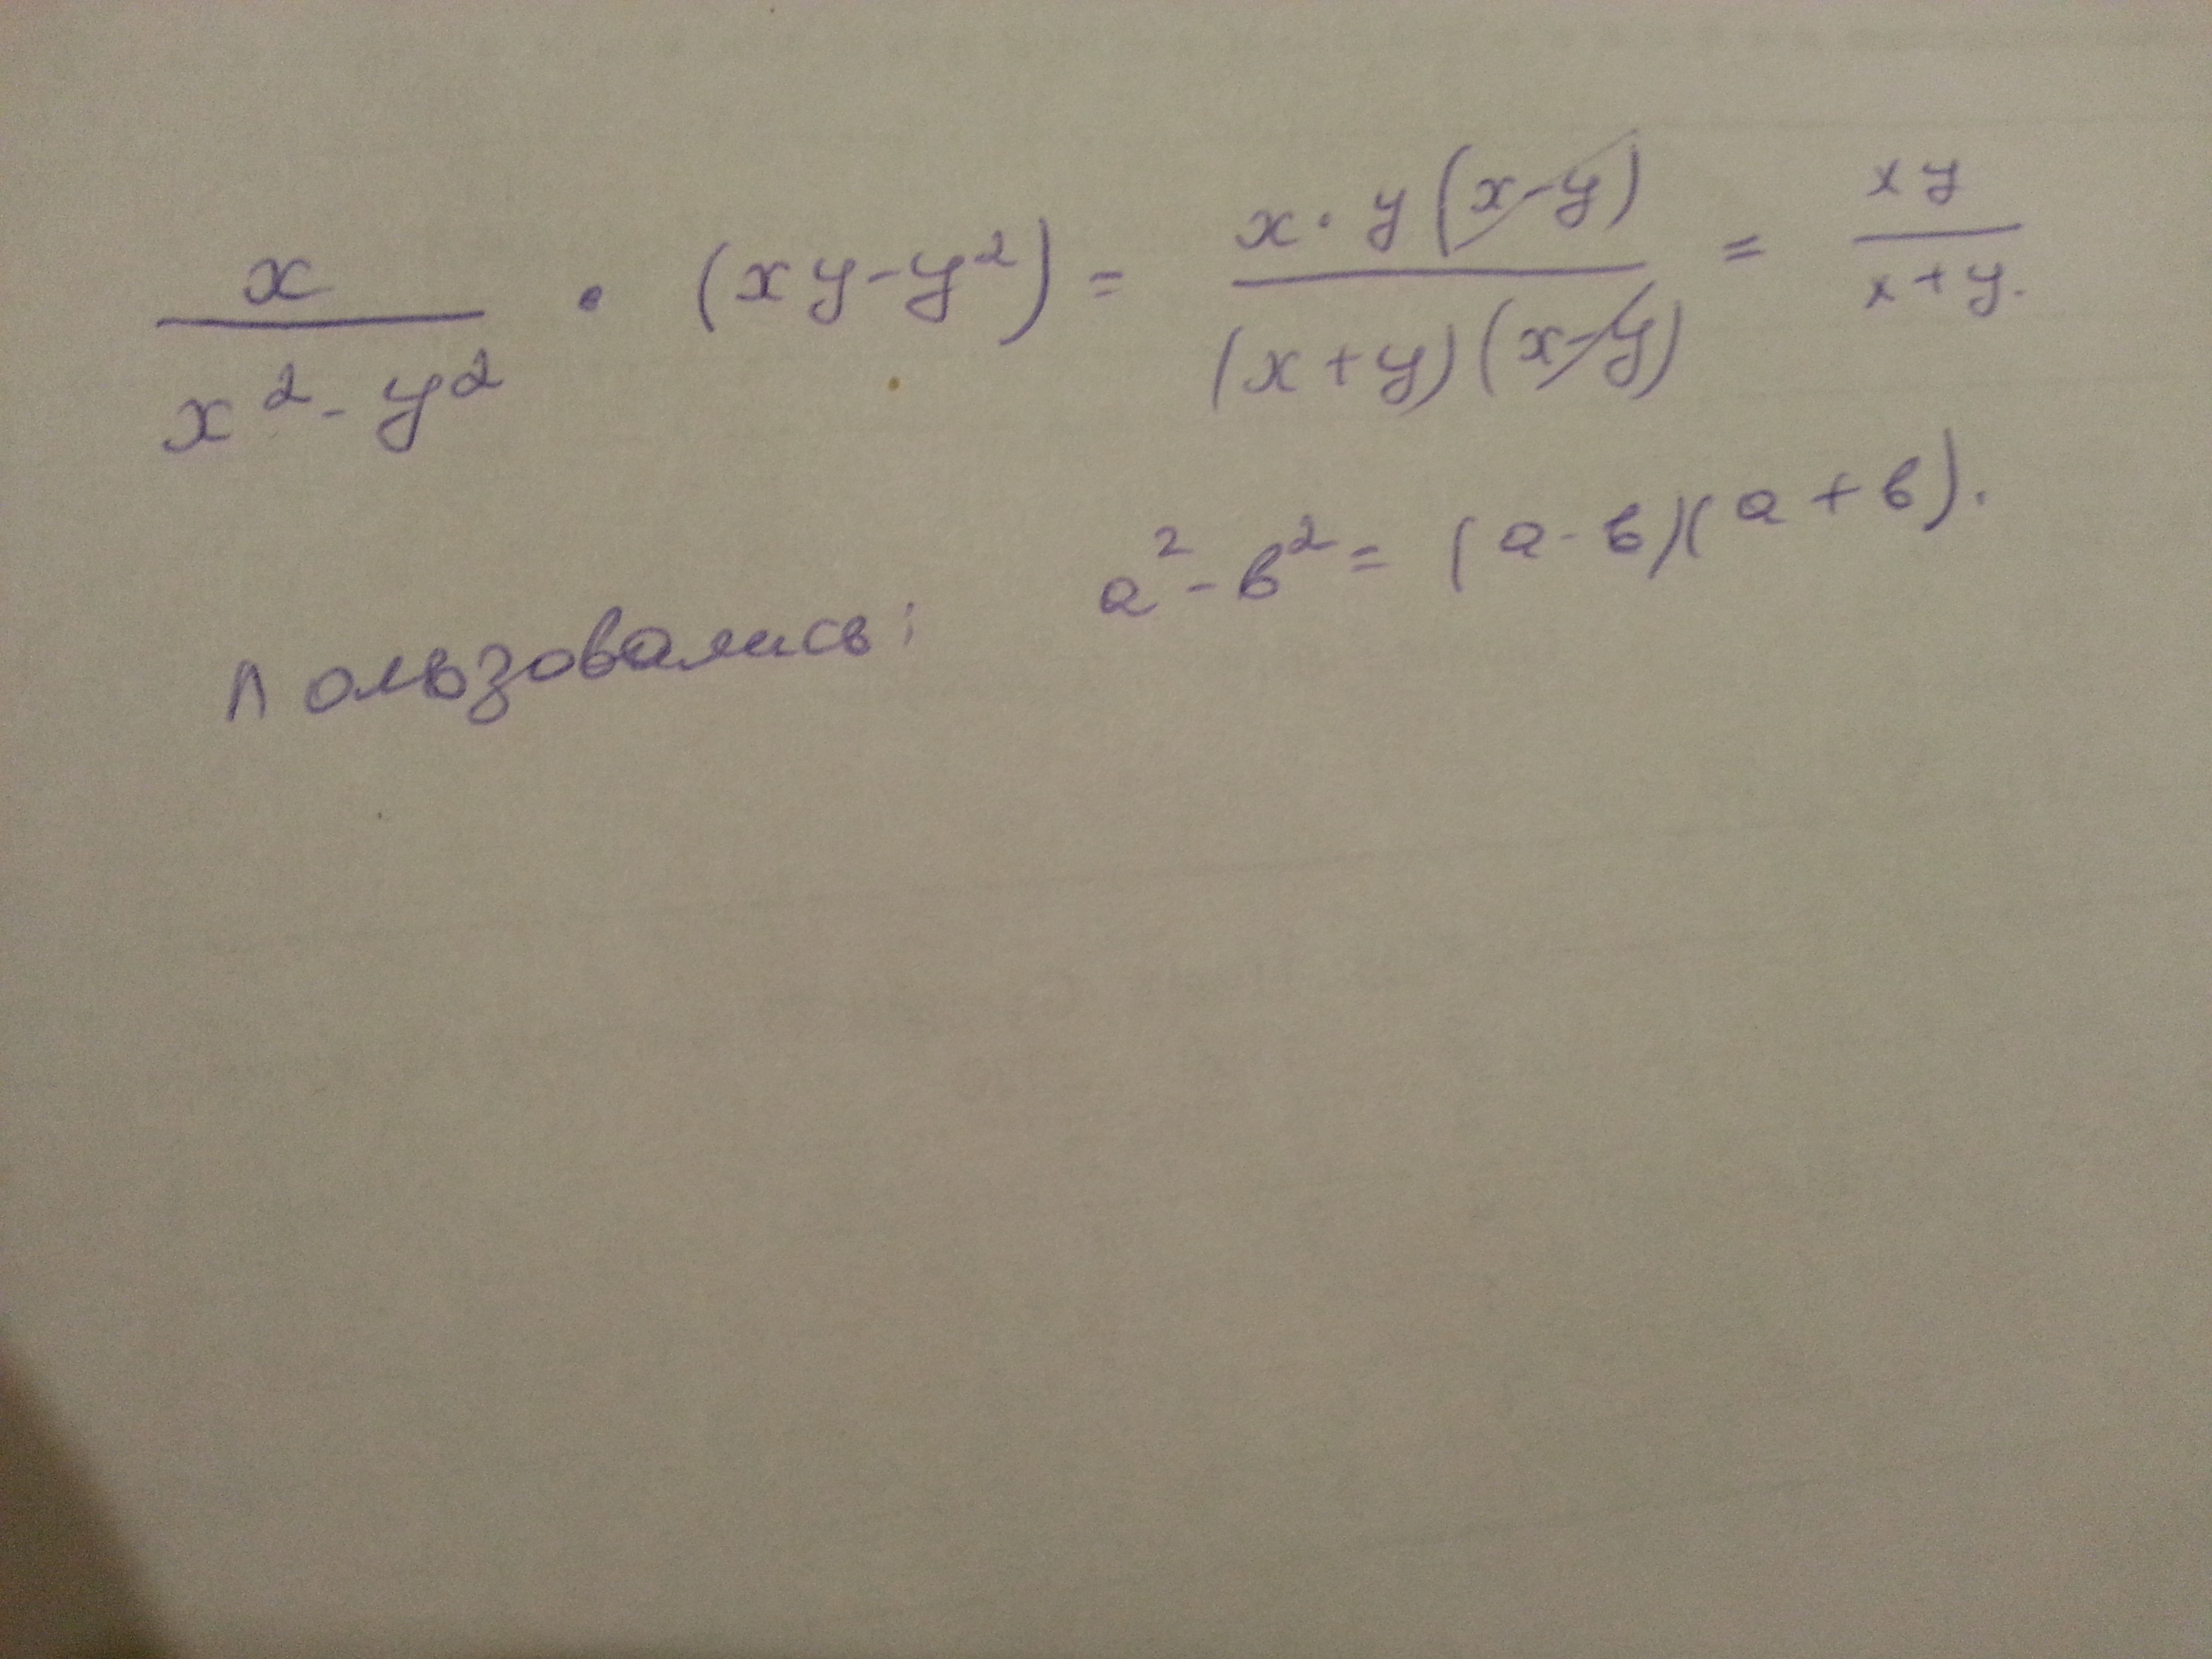 x / (x² - y²) · (xy - y²) = x · y(x - y) / ((x + y)(x - y)) = xy / (x + y).
пользовались: a² - в² = (a - в)(a + в).